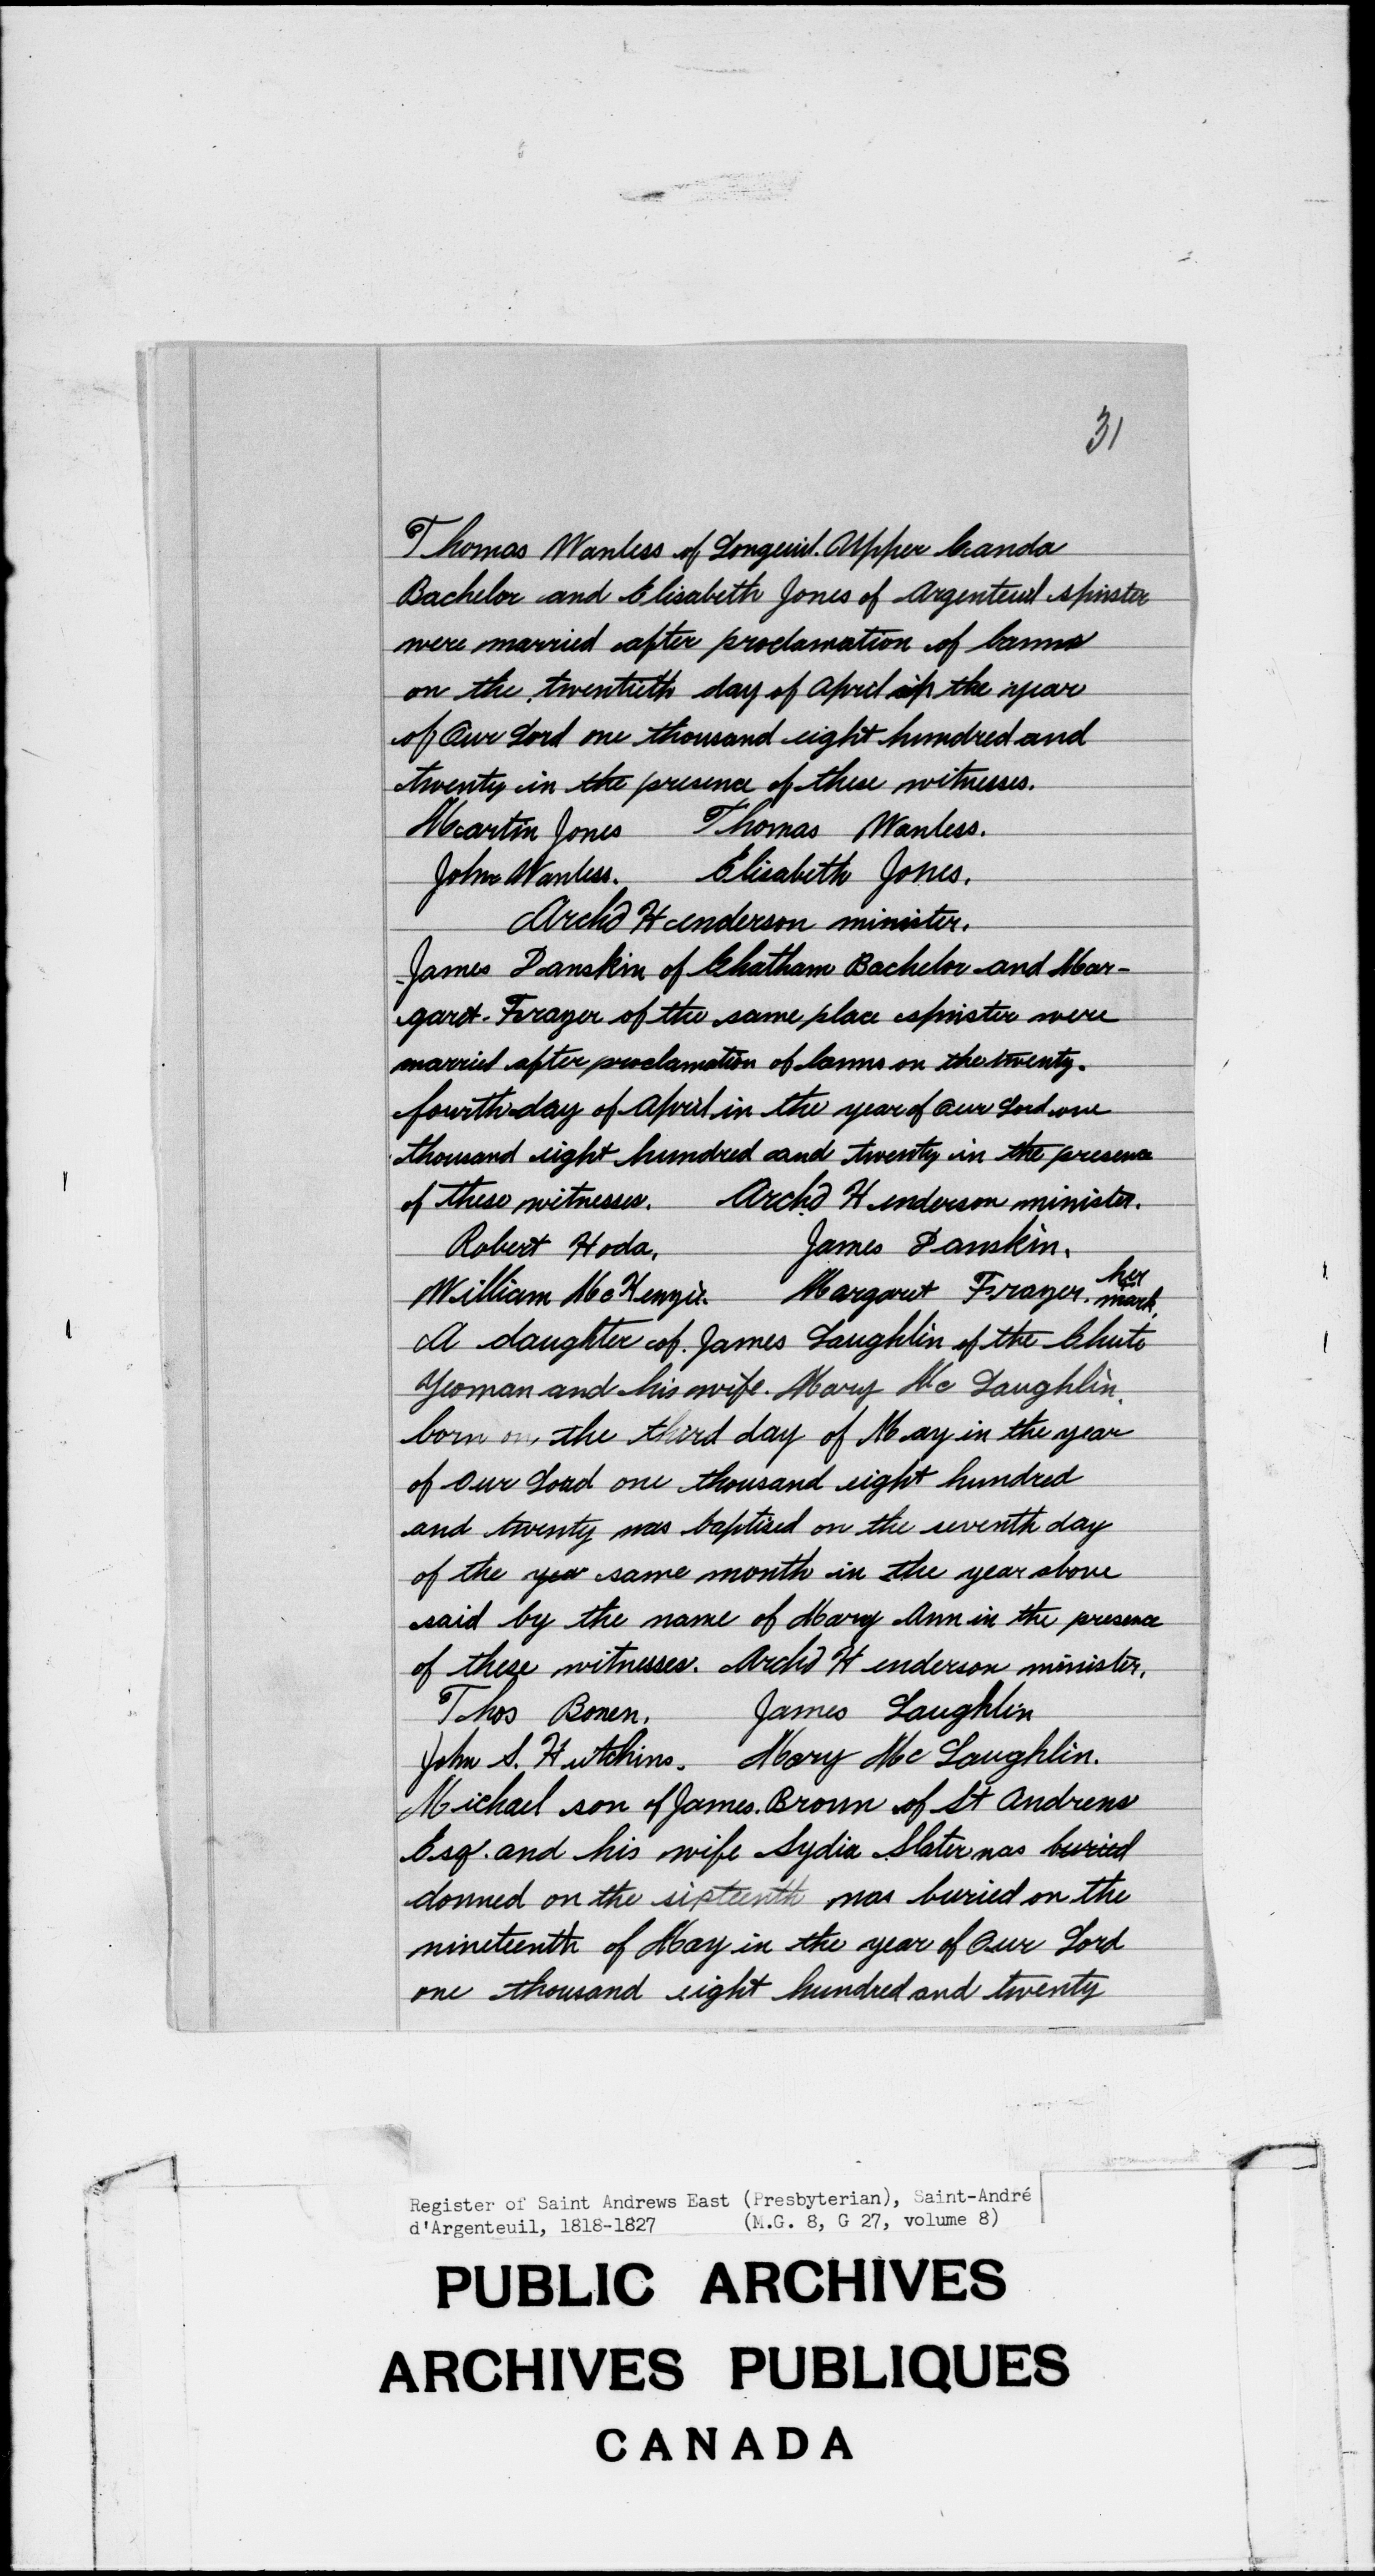 31
Thomas Wanless of Longeuil. Upper Canda
Bachelor and Elisabeth Jones of Argenteuil spinster
were married after proclamation of banns
on the twentieth day of April in the year
of Our Lord one thousand eight hundred and
twenty in the presence of these witnesses.
Martin Jones Thomas Wanless.
John Wanless. Elisabeth Jones.
Archd Henderson minister.
James Danskin of Chatham Bachelor and Mar-
garet Frayer of the same place spinster were
married after proclamation of banns on the twenty-
fourth day of April in the year of Our Lord one
thousand eight hundred and twenty in the presence
of these witnesses. Archd Henderson minister.
Robert Hoda. James Danskin.
William McKenzie. Margaret Frayer. her mark.
A daughter of James Laughlin of the Chute
Yeoman and his wife Mary Mc Laughlin.
born on the third day of May in the year
of Our Lord one thousand eight hundred
and twenty was baptised on the seventh day
of the year same month in the year above
said by the name of Mary Ann in the presence
of these witnesses. Archd Henderson minister.
Thos Bowen. James Laughlin
John S. Hutchins. Mary Mc Laughlin.
Michael son of James Brown of St Andrews
Esq. and his wife Lydia Slater was buried
downed on the sixteenth was buried on the
nineteenth of May in the year of Our Lord
one thousand eight hundred and twenty
Register of Saint Andrews East (Presbyterian), Saint-André
d'Argenteuil, 1818-1827 (M.G. 8, G 27, volume 8)
PUBLIC ARCHIVES
ARCHIVES PUBLIQUES
CANADA